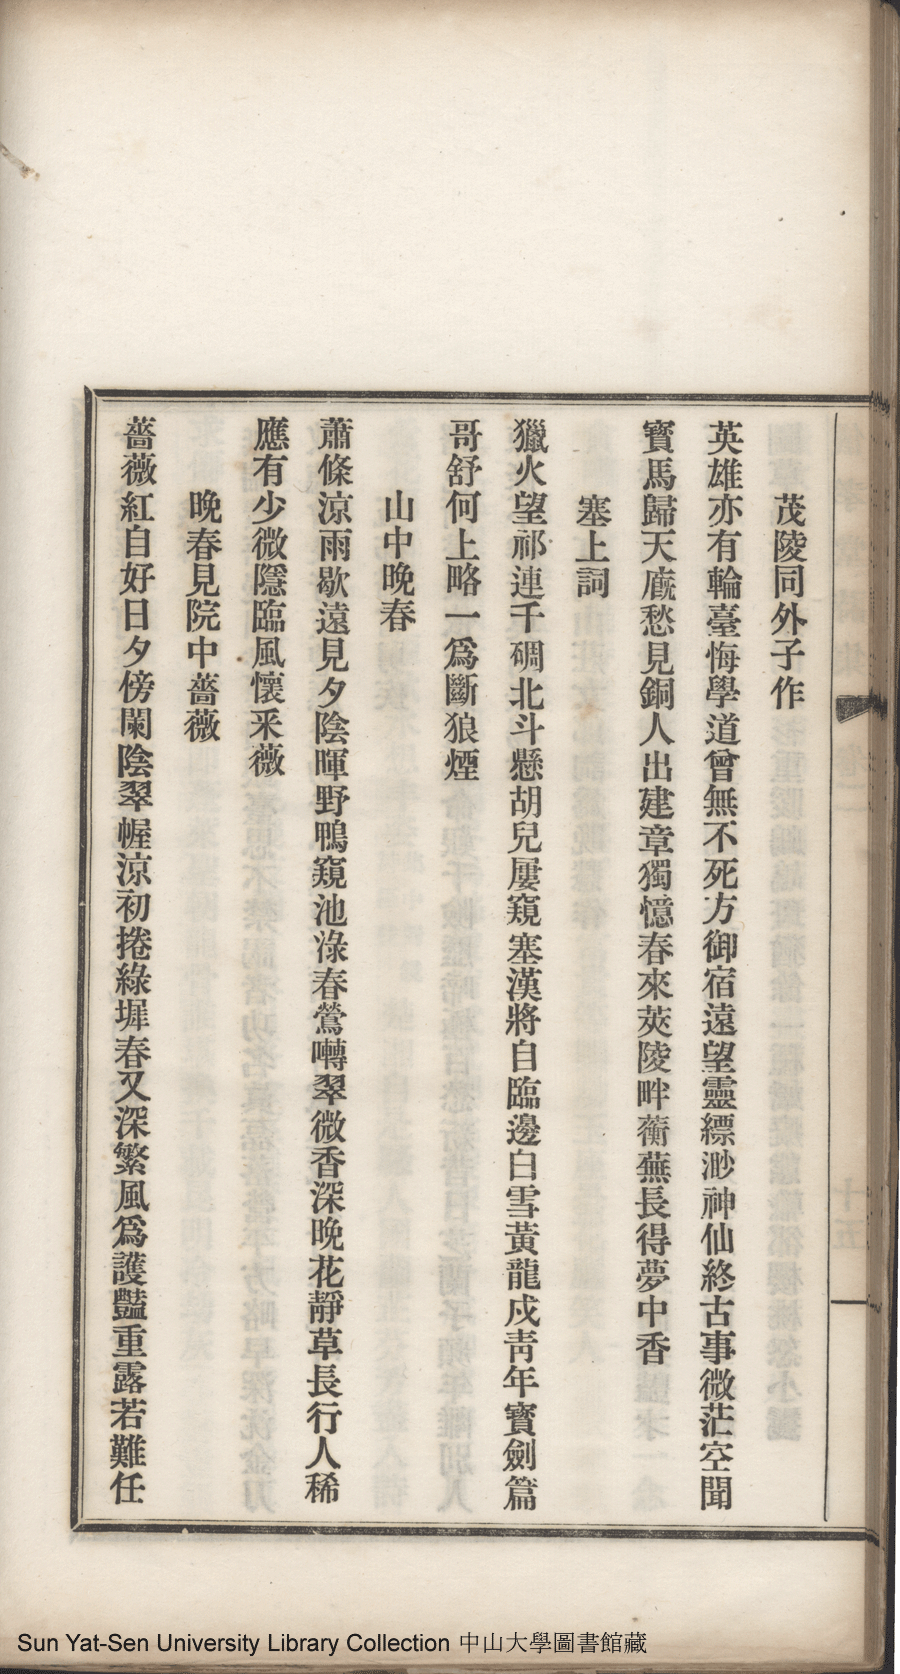 茂陵同外子作
英雄亦有輪臺悔學道曾無不死方御宿遠望靈縹渺神仙終古事微茫空聞
寶馬歸天廐愁見銅人出建章獨憶春來莢陵畔蘅蕪長得夢中香
塞上詞
獵火望祁連千碉北斗懸胡兒屢窺塞漢將自臨邊白雪黃龍戍靑年寶劍篇
哥舒何上略一爲斷狼煙
山中晚春
蕭條涼雨歇遠見夕陰暉野鴨窺池淥春鶯囀翠微香深晚花靜草長行人稀
應有少微隱臨風懷釆薇
晚春見院中薔薇
薔薇紅自好日夕傍闌陰翠幄涼初捲綠墀春又深繁風爲護豔重露若難任
Sun Yat-Sen University Library Collection 中山大學圖書館藏